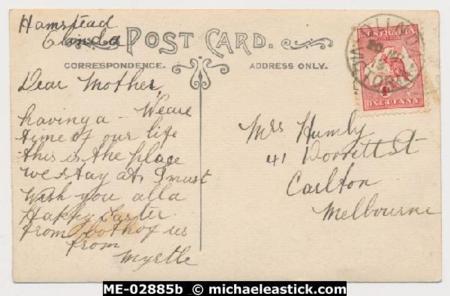 Hamstead
Clinda
POST CARD.
CORRESPONDENCE.
ADDRESS ONLY.
Dear Mother,
We are
having a
time of our life
this is the place
we stay at I must
Wish you all a
Happy Easter
from both of us
from
Myrtle
AUSTRALIA
ONE PENNY
Mrs Humby
41 Dorrett St
Carlton
Melbourne
ME-02885b © michaeleastick.com